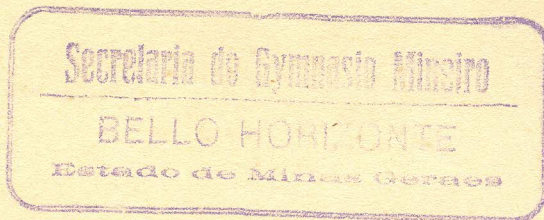 Secretaria do Gymnasio Mineiro
BELLO HORIZONTE
Estado de Minas Geraes